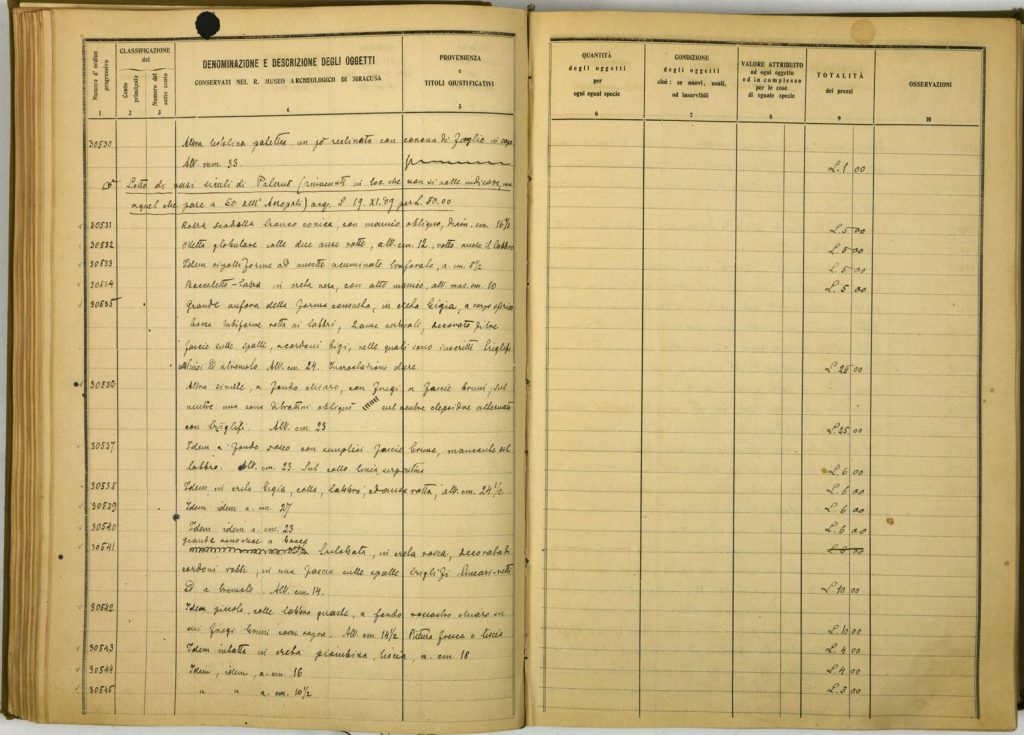 Numero d'ordine progressivo
CLASSIFICAZIONE
del
Conto principale
Numero del sotto conto
DENOMINAZIONE E DESCRIZIONE DEGLI OGGETTI
CONSERVATI NEL R. MUSEO ARCHEOLOGICO DI SIRACUSA
PROVENIENZA
e
TITOLI GIUSTIFICATIVI
1 2 3 4 5
QUANTITÀ
degli oggetti
per
ogni egual specie
CONDIZIONE
degli oggetti
cioè: se nuovi, usati,
od inservibili
VALORE ATTRIBUITO
ad ogni oggetto
ed in complesso
per le cose
di eguale specie
TOTALITÀ
dei prezzi
OSSERVAZIONI
6 7 8 9 10
30530 Altra un pò reclinata con corona di foglie in capo
Alt. mm 33. L. 1 00
Lotto di vasi siculi di (rinvenuti in loc. che non si volle indicare, ma
a quel che pare a SO dell'Acropoli) acq. 19. XI. 09 per L. 50.00
30531 Rozza scodella tronco conica, con manico obliquo, diam. cm. 16 1/2 L. 5 00
30532 Olletta globulare colle due anse rotte, alt. cm. 12, rotto anche il labbro L. 5 00
30533 Idem ad ansette acuminate, a. cm. 8 1/2 L. 5 00
30534 Boccaletto-tazza in creta nera, con alto manico, alt. mas. cm. 10 L. 5 00
30535 Grande anfora della forma consueta, in creta bigia, a corpo sferico
rotta ai labbri, 2 anse verticali, decorata di tre
fascie sulle spalle, a cordoni bigi, nelle quali sono inscritti triglifi
ed a tremolo. Alt. cm. 24. Incrostazioni L. 25 00
30536 Altra simile, a fondo chiaro, con fregi a fascie brune, sul
ventre una zona di trattini obliqui sul ventre clepsidre alternate
con triglifi. Alt. cm. 23 L. 25 00
30537 Idem a fondo rosso con semplici fascie brune, mancante del
labbro. Alt. cm. 23 Sul collo linea serpentina L. 6 00
30538 Idem in creta bigia, colla, labbro, ed ansa rotta, alt. cm. 24 1/2 L. 6 00
30539 Idem idem a. cm. 27 L. 6 00
30540 Idem idem a. cm. 23 L. 6 00
grande oinochoe a bocca
30541 trilobata, in creta rosea, decorata di L. 6 00
cordoni rossi, in una fascia sulle spalle triglifi lineari
ed a tremolo. Alt. cm. 14. L. 10 00
30542 Idem piccola, colle labbra guaste, a fondo rossastro chiaro
fregi bruni come sopra. Alt. cm. 14 1/2 Pittura fresca e liscia L. 10 00
30543 Idem intatta in creta piombina, liscia, a. cm. 18 L. 4 00
30544 Idem, idem, a. cm. 16 L. 4 00
30545 " " a. cm. 10 1/2 L. 3 00